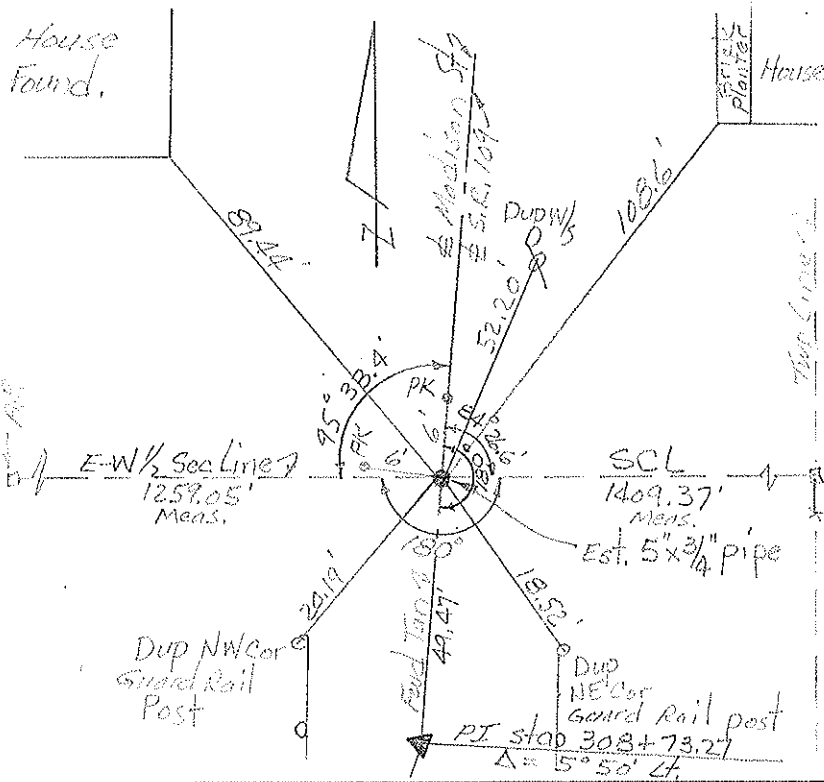 House
Found.
Brick
Planter
House
℄ Madison St
℄ S.R. 109
Z
89.44'
108.6'
Dup W/S
52.20'
Twp Line
95° 33.4'
PK
PK
6'
6'
84° 26.6'
180°
180°
E-W ½ Sec Line
1259.05'
Meas.
SCL
1409.37'
Meas.
Est. 5" x ¾" pipe
20.19'
18.52'
Fwd Tan
49.47'
Dup NW Cor
Guard Rail
Post
Dup
NE Cor
Guard Rail post
PI sta 308+73.27
Δ = 5° 50' Lt